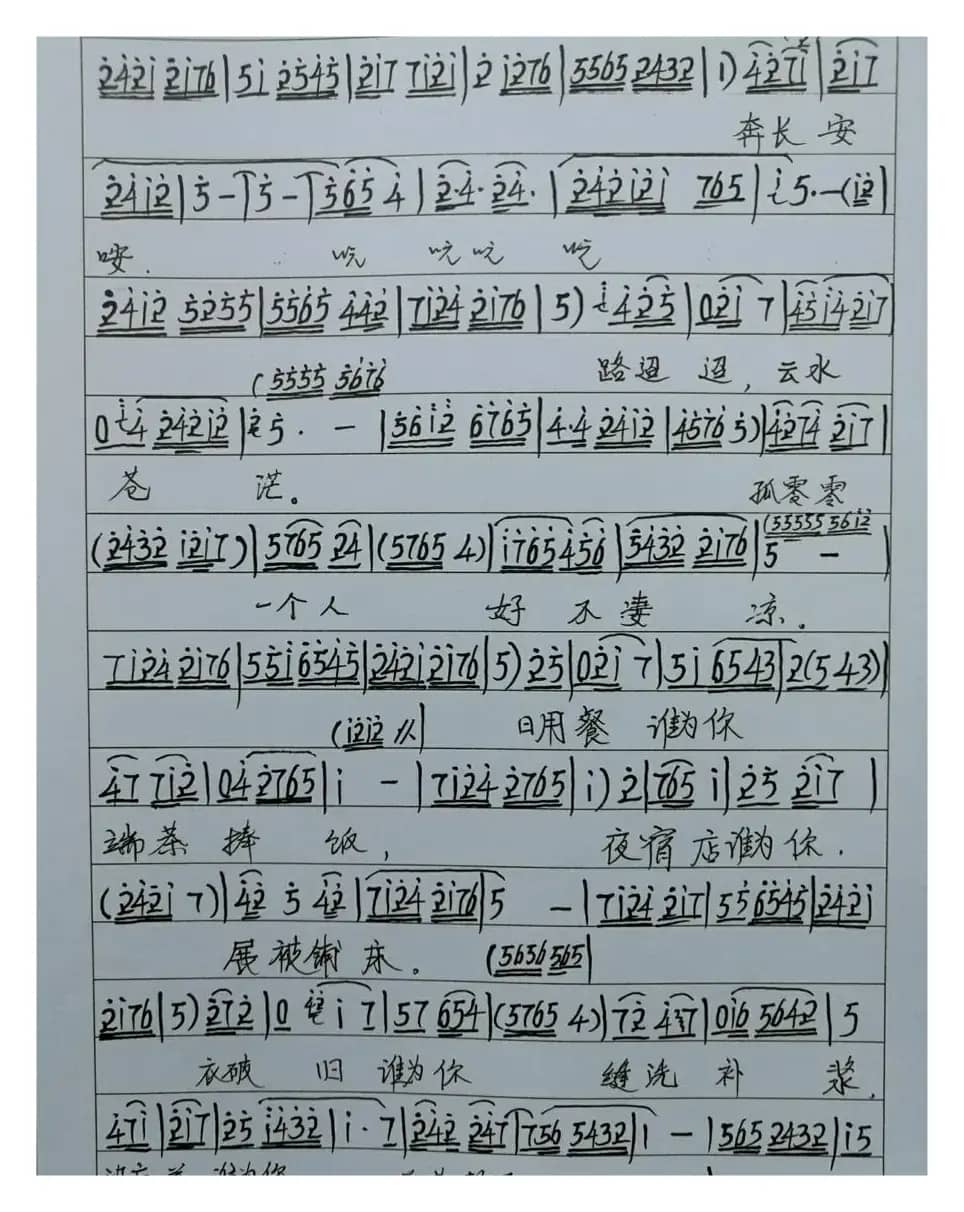 2421 2176 | 51 2545 | 217 7121 | 2 1276 | 5565 2432 | 1) 4271 | 217
奔长安
2412 | 5 - | 5 - | 565 4 | 2·4· 24· | 242121 765 | 5·-(12 |
2412 5255 | 5565 442 | 7124 2176 | 5) 425 | 021 7 | 4514217
(5555 5676
路迢迢,云水
04 24212 | 5 · - | 5612 6765 | 4·4 2412 | 45765) | 4274 217 |
苍茫。孤零零
(55555 5612
(2432 1217) | 5765 24 | (5765 4) | 1765456 | 5432 2176 | 5 - |
一个人 好不凄凉。
7124 2176 | 551 6545 | 2421 2176 | 5) 25 | 021 7 | 51 6543 | 2(5 43) |
(1212 |
日用餐 谁为你
47 712 | 04 2765 | 1 - | 7124 2765 | 1) 2 | 765 1 | 25 217 |
端茶捧饭, 夜宿店谁为你.
(2421 7) | 42 5 42 | 7124 2176 | 5 - | 7124 217 | 55 6545 | 2421
展被铺床。
(5656 565 |
2176 | 5) 272 | 0 42 1 7 | 57 654 | (5765 4) | 72 437 | 016 5642 | 5
衣破旧谁为你 缝洗补浆,
471 | 217 | 25 1432 | 1·7 | 242 247 | 756 5432 | 1 - | 565 2432 | 15
谁为你